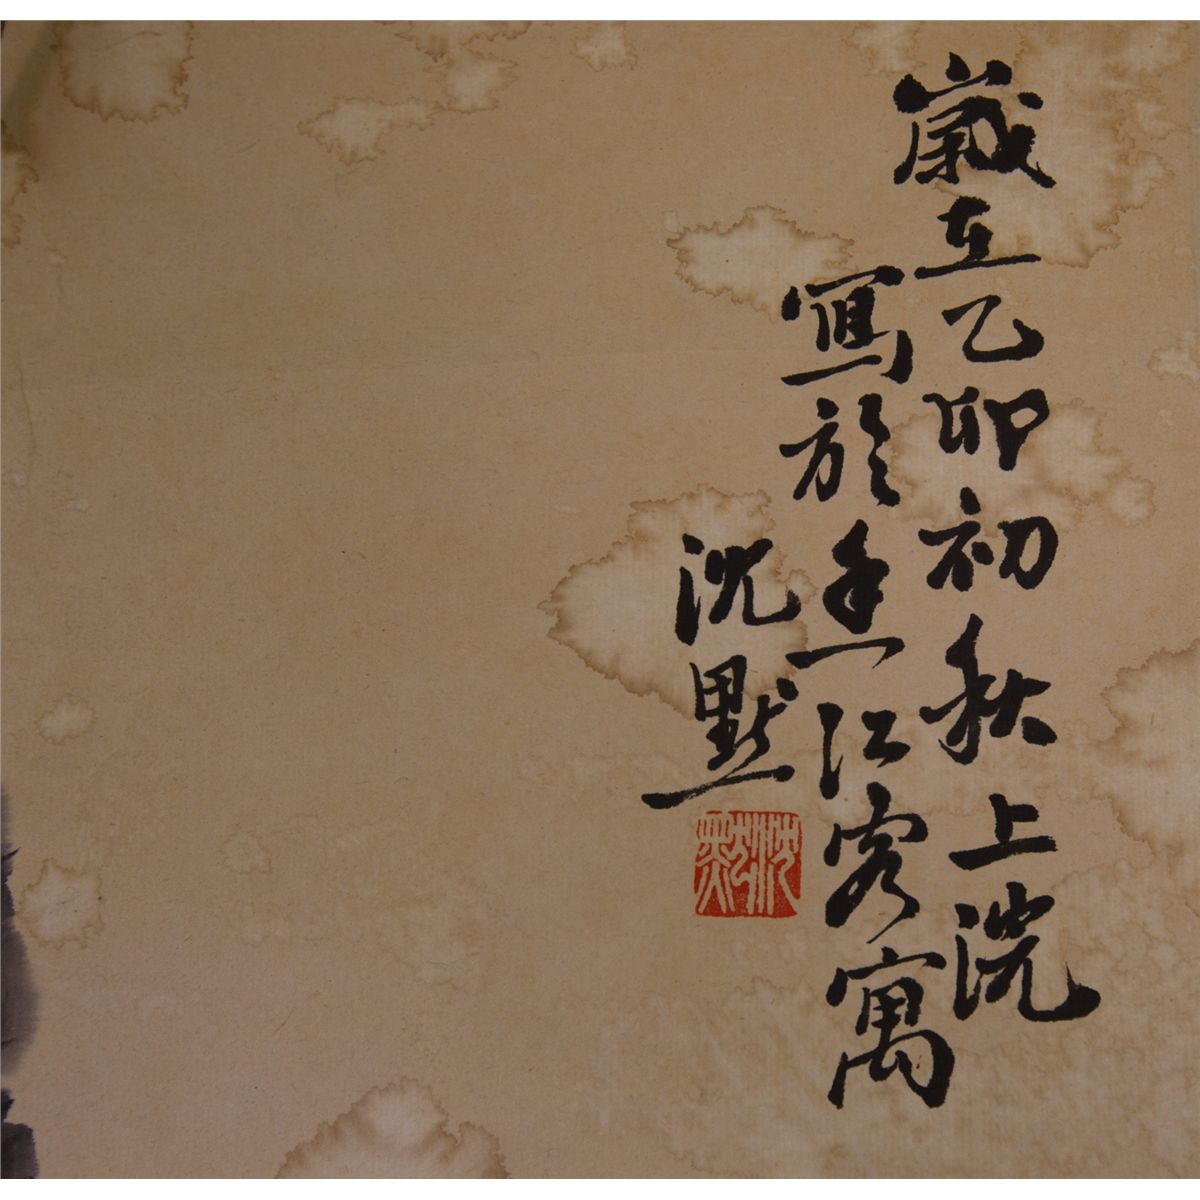 歲在乙卯初秋上浣
寫於香江客寓
沈默
沈默